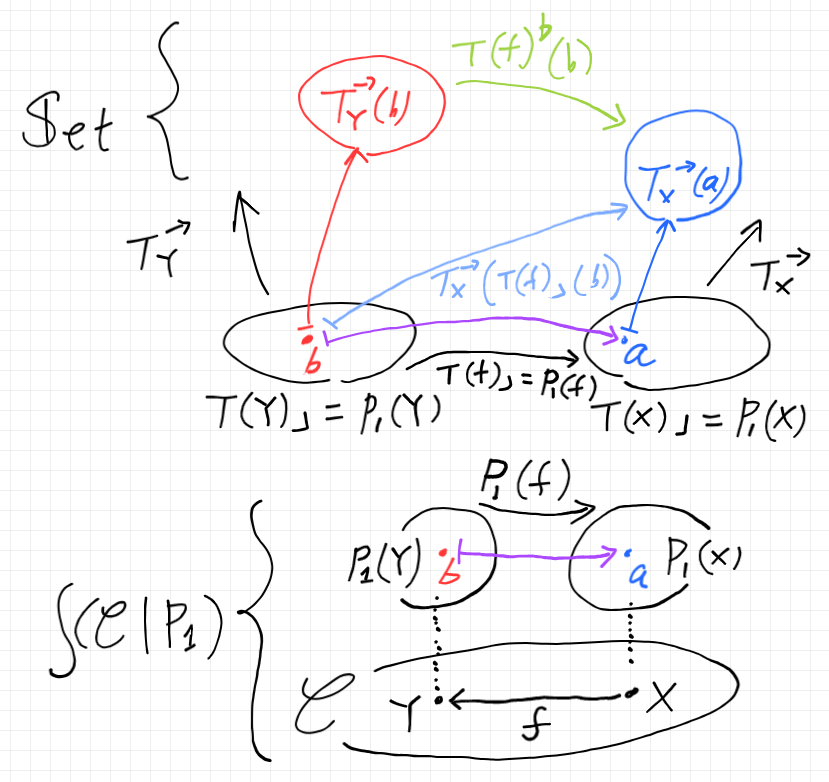 T(f)^b(b)
T_Y^→(b)
Set {
T_X^→(a)
T_Y^→
T_X^→(T(f)⌟(b))
T_X^→
b
a
T(f)⌟ = P₁(f)
T(Y)⌟ = P₁(Y)
T(X)⌟ = P₁(X)
P₁(f)
P₁(Y) b
a P₁(X)
∫(𝒞|P₁) {
𝒞 Y
f
X